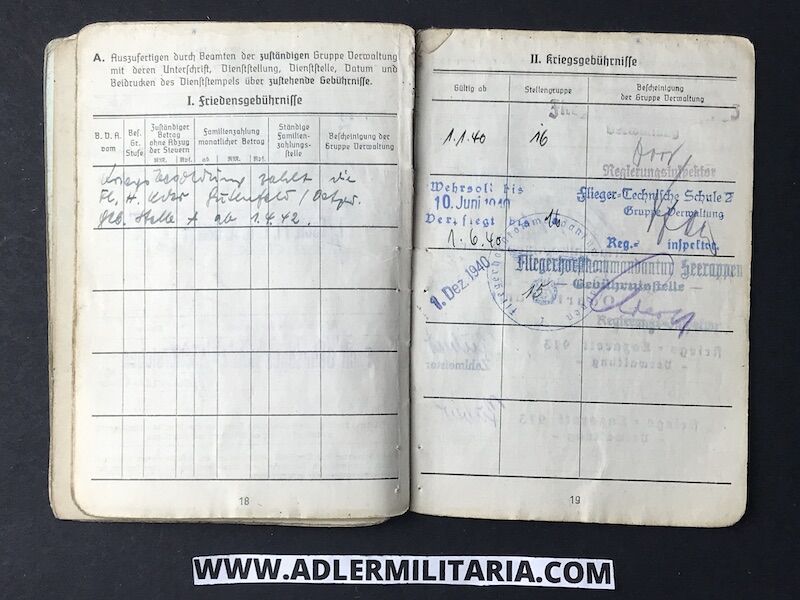 A. Auszufertigen durch Beamten der zuständigen Gruppe Verwaltung
mit deren Unterschrift, Dienststellung, Dienststelle, Datum und
Beidrucken des Dienststempels über zustehende Gebührnisse.
I. Friedensgebührnisse
B. D. A. vom
Bes. Gr. Stufe
Zuständiger Betrag ohne Abzug der Steuern
RM. Rpf.
Familienzahlung monatlicher Betrag
ab RM. Rpf.
Ständige Familien-zahlungs-stelle
Bescheinigung der Gruppe Verwaltung
Kriegsbesoldung zahlt die
Fl. H. Kdtr
Geb. Stelle A ab 1.4.42.
18
II. Kriegsgebührnisse
Gültig ab
Stellengruppe
Bescheinigung
der Gruppe Verwaltung
1.1.40 16
Verwaltung
Regierungsinspektor
Wehrsold bis
10. Juni 1940
Verpflegt bis
Flieger-Technische Schule 2
Gruppe Verwaltung
1.6.40 16
Reg.- inspektor
1. Dez. 1940
15
Fliegerhorstkommandantur Seerappen
- Gebührnisstelle -
19
WWW.ADLERMILITARIA.COM